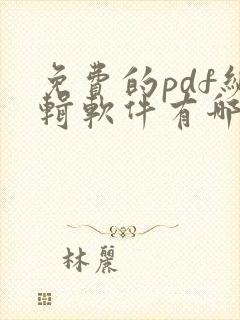 免費的pdf編
輯軟件有哪
林麗